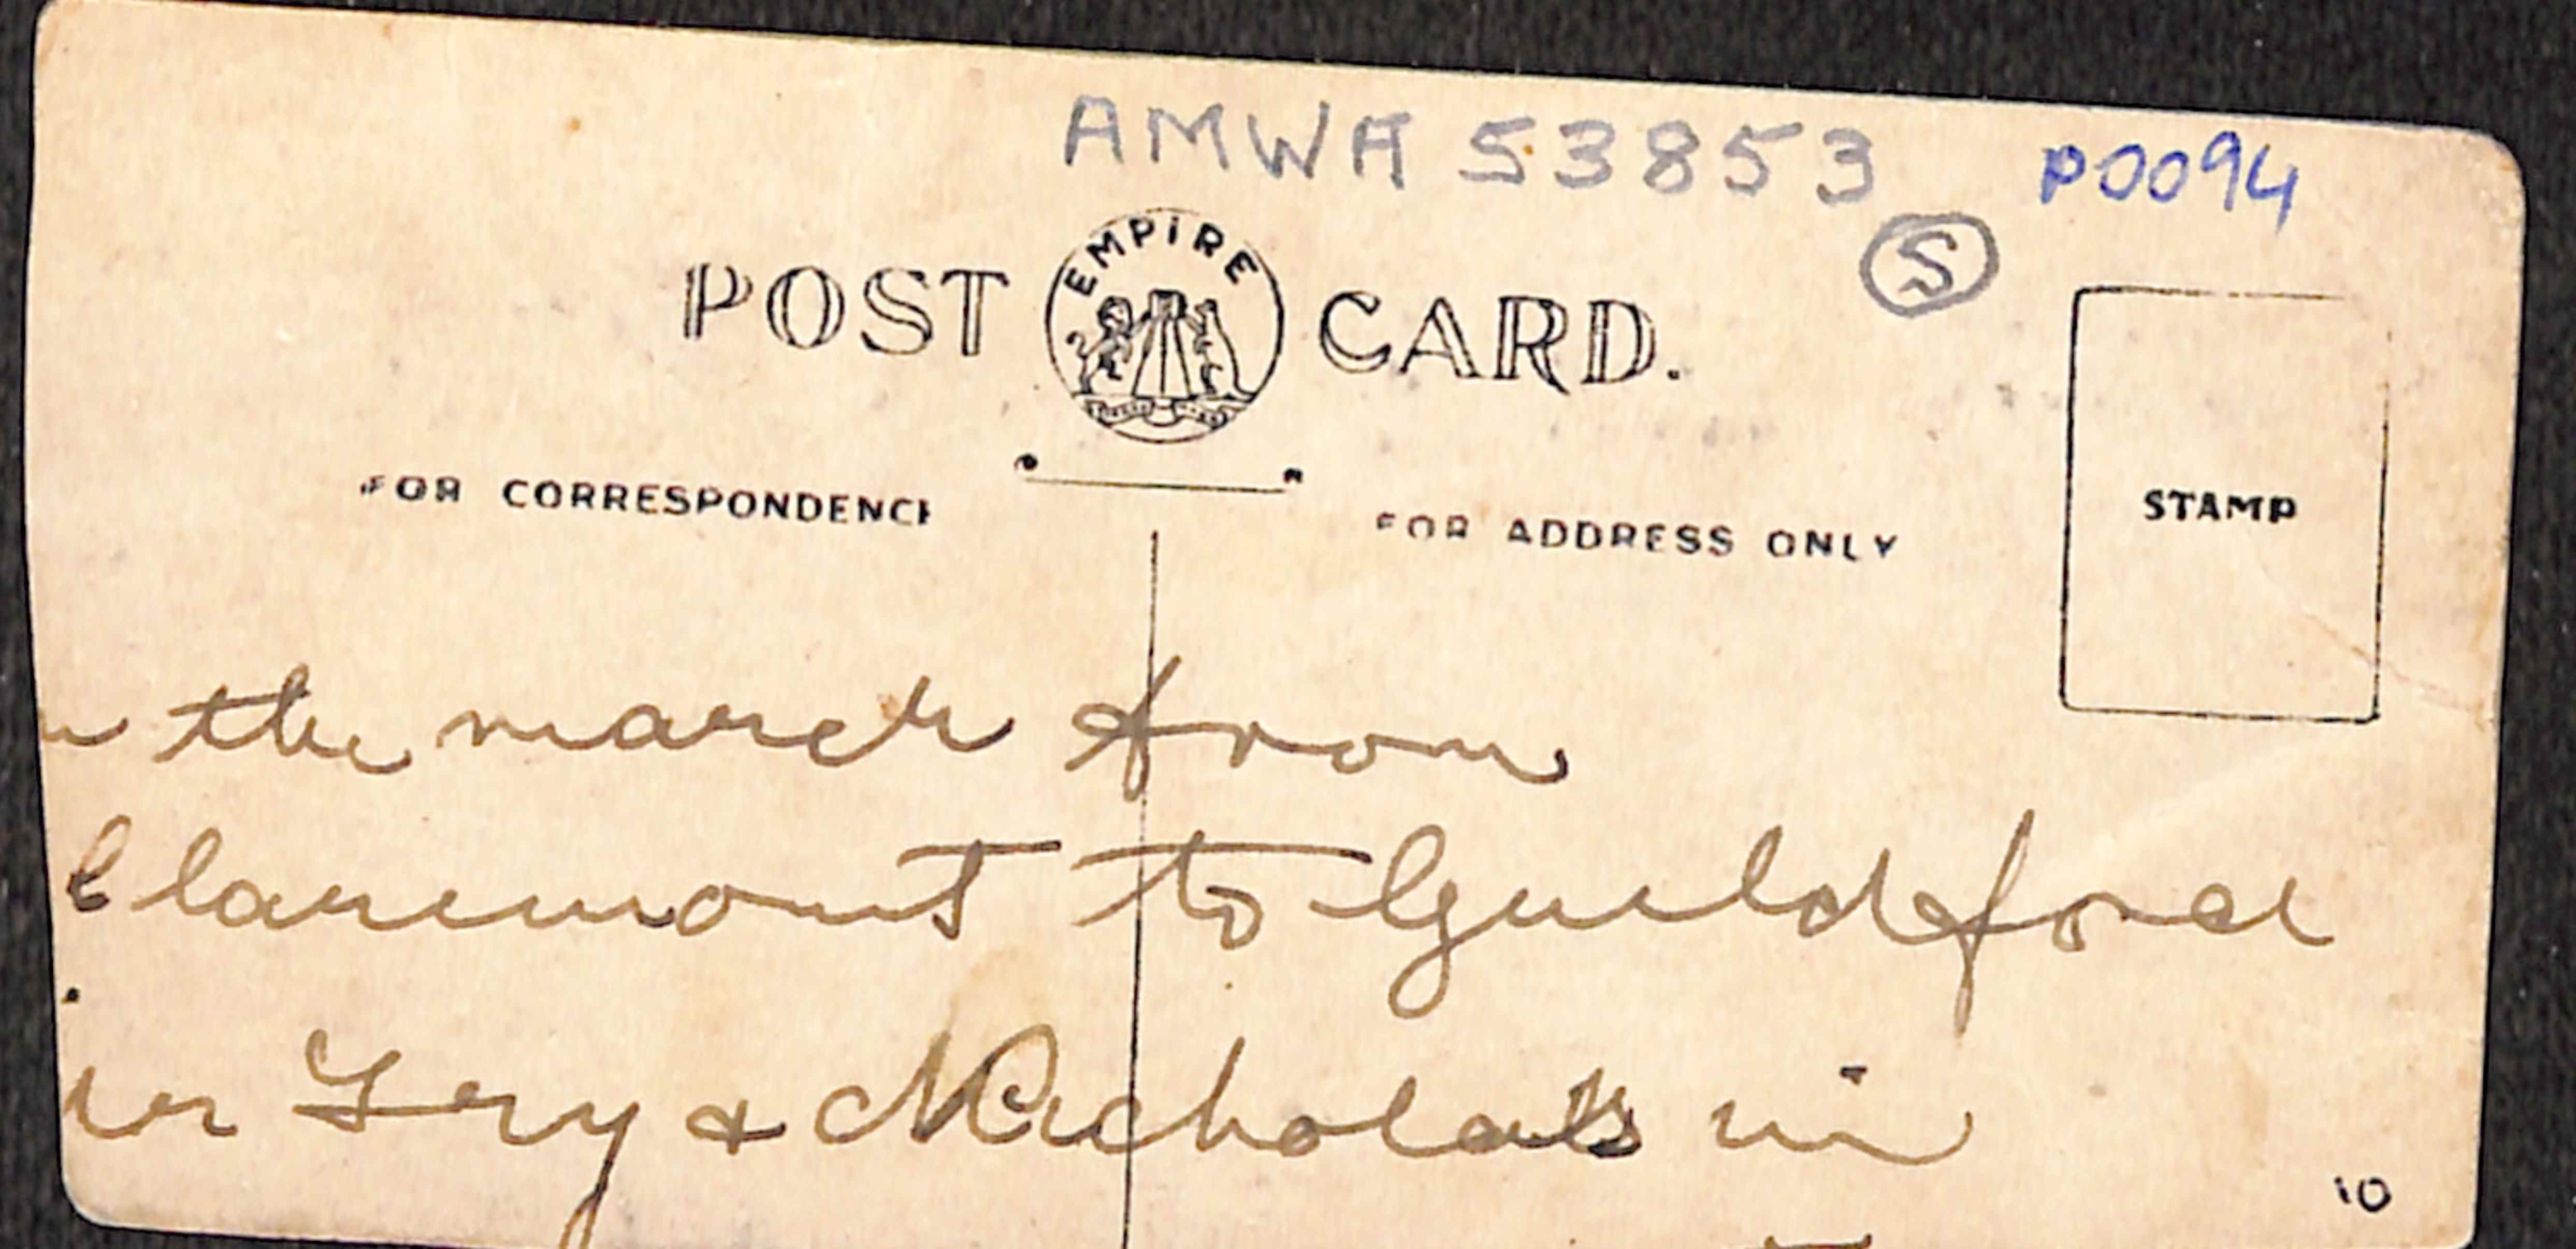 AMWA 53853 P0094
S
POST EMPIRE CARD.
FOR CORRESPONDENCE
FOR ADDRESS ONLY
STAMP
the march from
Claremont to Guildford
& Nicholas in
10